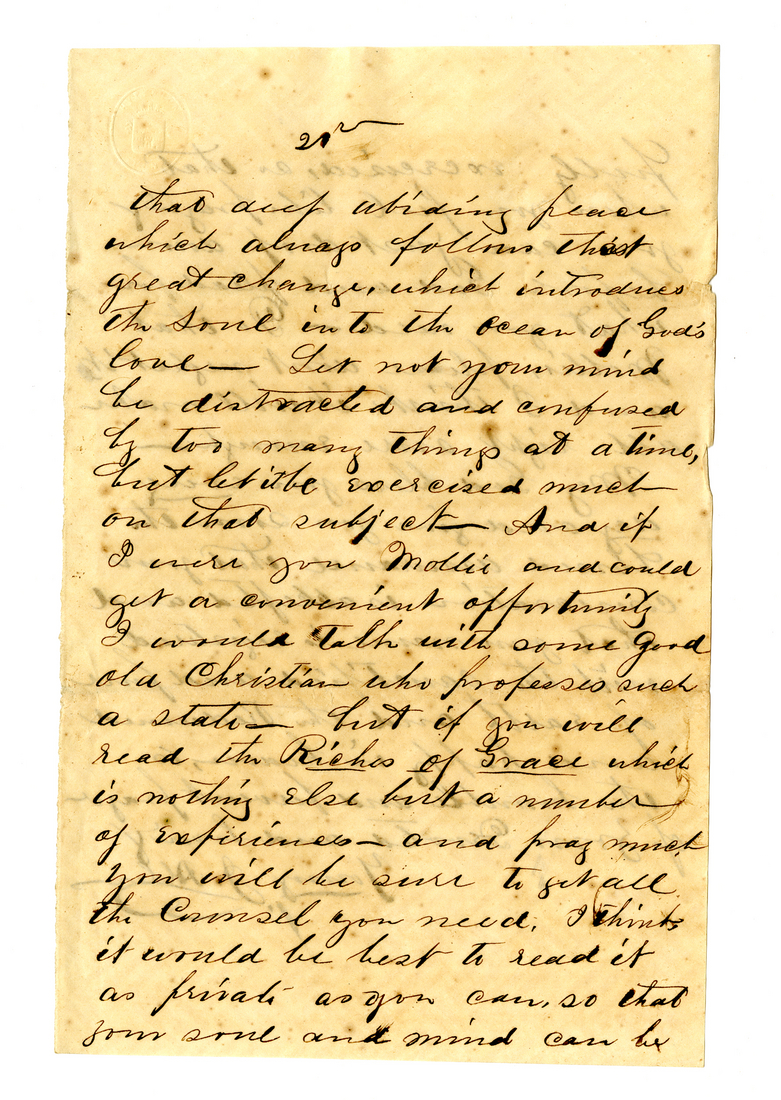 that deep abiding peace
which always follows that
great change, which introduces
the soul into the ocean of God's
love — Let not your mind
be distracted and confused
by too many things at a time,
but let it be exercised much
on that subject — And if
I were you Mollie and could
get a convenient opportunity
I would talk with some good
old Christian who professes such
a state — but if you will
read the Riches of Grace which
is nothing else but a number
of experiences — and pray much
you will be sure to get all
the Counsel you need. I think
it would be best to read it
as private as you can, so that
your soul and mind can be